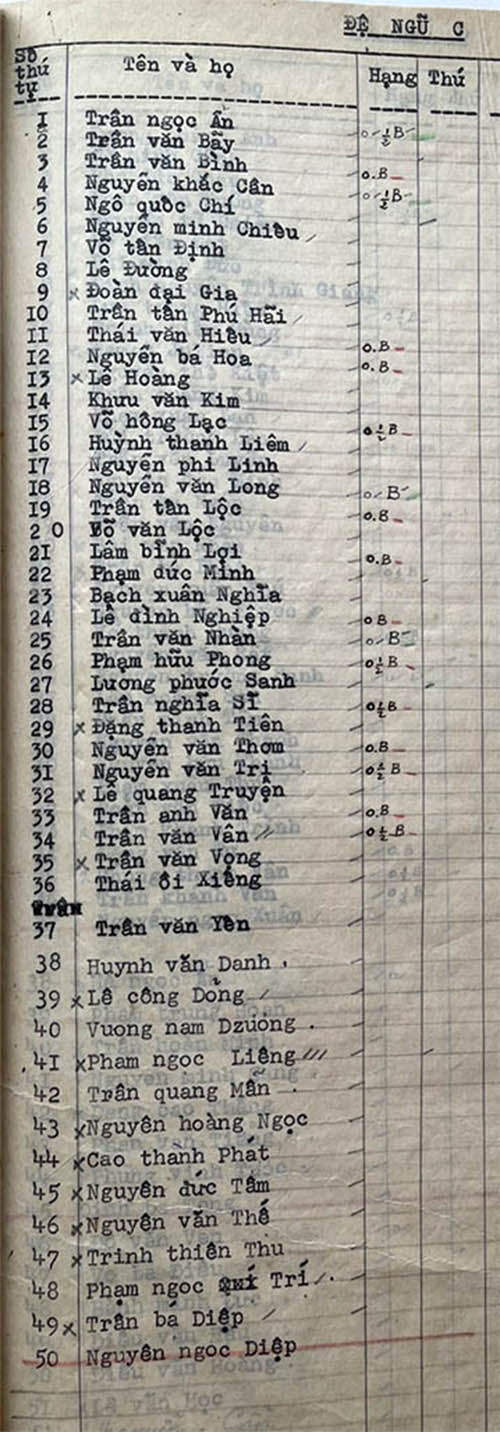 ĐỆ NGŨ C
Số thứ tự Tên và họ Hạng Thứ
1 Trần ngọc Ẩn
2 Trần văn Bẫy 0 ½ B
3 Trần văn Bình
4 Nguyễn khắc Cần 0.B
5 Ngô quốc Chí 0 ½ B
6 Nguyễn minh Chiếu
7 Võ tấn Định
8 Lê Đường
9 x Đoàn đại Gia
10 Trần tấn Phú Hãi
11 Thái văn Hiếu
12 Nguyễn bá Hoa 0.B
13 x Lê Hoàng 0.B
14 Khưu văn Kim
15 Võ hồng Lạc
16 Huỳnh thanh Liêm 0 ½ B
17 Nguyễn phi Linh
18 Nguyễn văn Long 0. B
19 Trần tấn Lộc 0.B
20 Võ văn Lộc
21 Lâm bĩnh Lợi 0.B
22 Phạm đức Minh
23 Bạch xuân Nghĩa
24 Lê đình Nghiệp 0 B
25 Trần văn Nhàn 0. B
26 Phạm hữu Phong 0 ½ B
27 Lương phước Sanh
28 Trần nghĩa Sĩ 0 ½ B
29 x Đặng thanh Tiên
30 Nguyễn văn Thơm 0.B
31 Nguyễn văn Trị 0 ½ B
32 x Lê quang Truyện
33 Trần anh Văn 0.B
34 Trần văn Vân 0 ½ B
35 x Trần văn Vọng
36 Thái ôi Xiếng
37 Trần văn Yên
38 Huynh văn Danh
39 x Lê công Dỏng
40 Vuong nam Dzuong
41 x Pham ngọc Liêng
42 Trần quang Mẫn
43 x Nguyên hoàng Ngọc
44 x Cao thành Phát
45 x Nguyên đức Tâm
46 x Nguyên văn Thế
47 x Trinh thiên Thu
48 Phạm ngọc Trí
49 x Trần bá Diệp
50 Nguyên ngọc Diệp